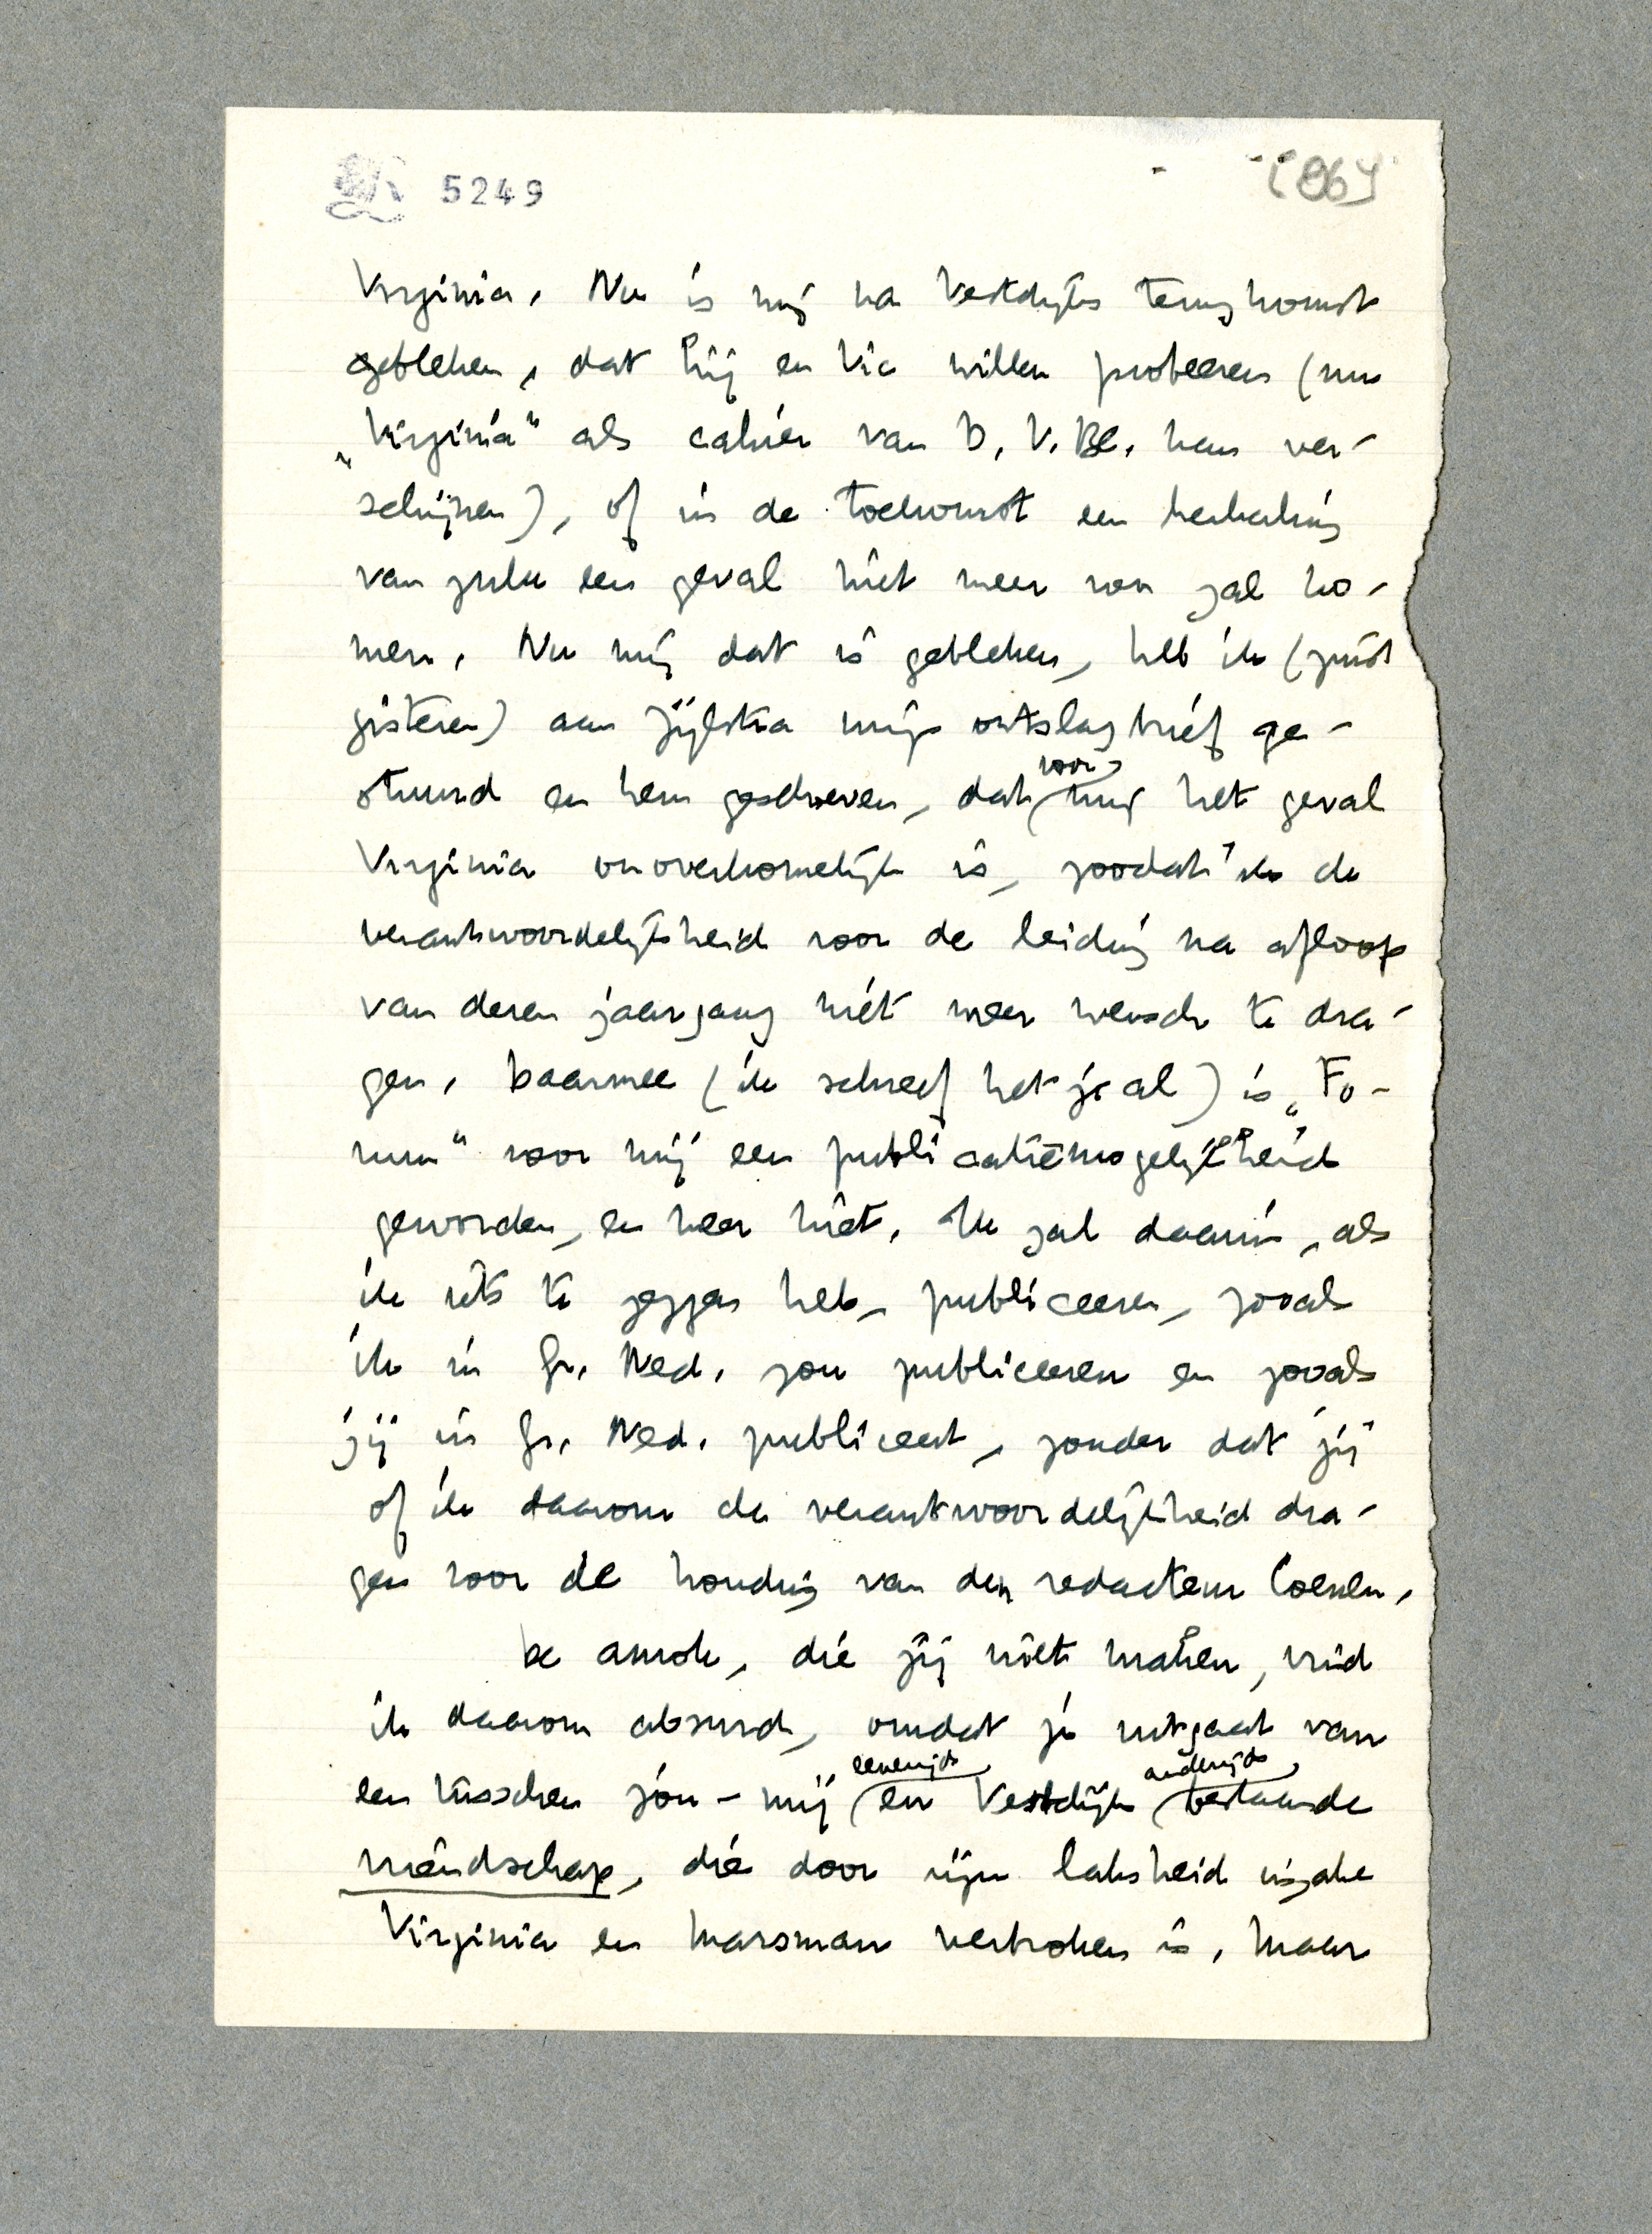 5249
Virginia. Nu is mij na Vestdijks terugkomst
gebleken, dat hij en Vic willen probeeren (nu
„Virginia” als cahier van D. V. Bl. kan ver-
schijnen), of in de toekomst een herhaling
van zulk een geval niet meer voor zal ko-
men. Nu mij dat is gebleken, heb ik (juist
gisteren) aan Zijlstra mijn ontslagbrief ge-
stuurd en hem geschreven, dat voor mij het geval
Virginia onoverkomelijk is, zoodat ik de
verantwoordelijkheid voor de leiding na afloop
van dezen jaargang niet meer wensch te dra-
gen. Daarmee (ik schreef het je al) is „Fo-
rum” voor mij een publicatiemogelijkheid
geworden, en meer niet. Ik zal daarin, als
ik iets te zeggen heb, publiceeren, zooals
ik in Gr. Ned. zou publiceeren en zooals
jij in Gr. Ned. publiceert, zonder dat jij
of ik daarom de verantwoordelijkheid dra-
gen voor de houding van den redacteur Coenen.
De amok, die jij wilt maken, vind
ik daarom absurd, omdat je uitgaat van
een tusschen jou - mij eenerzijds en Vestdijk anderzijds bestaande
vriendschap, die door zijn laksheid inzake
Virginia en Marsman verbroken is. Maar